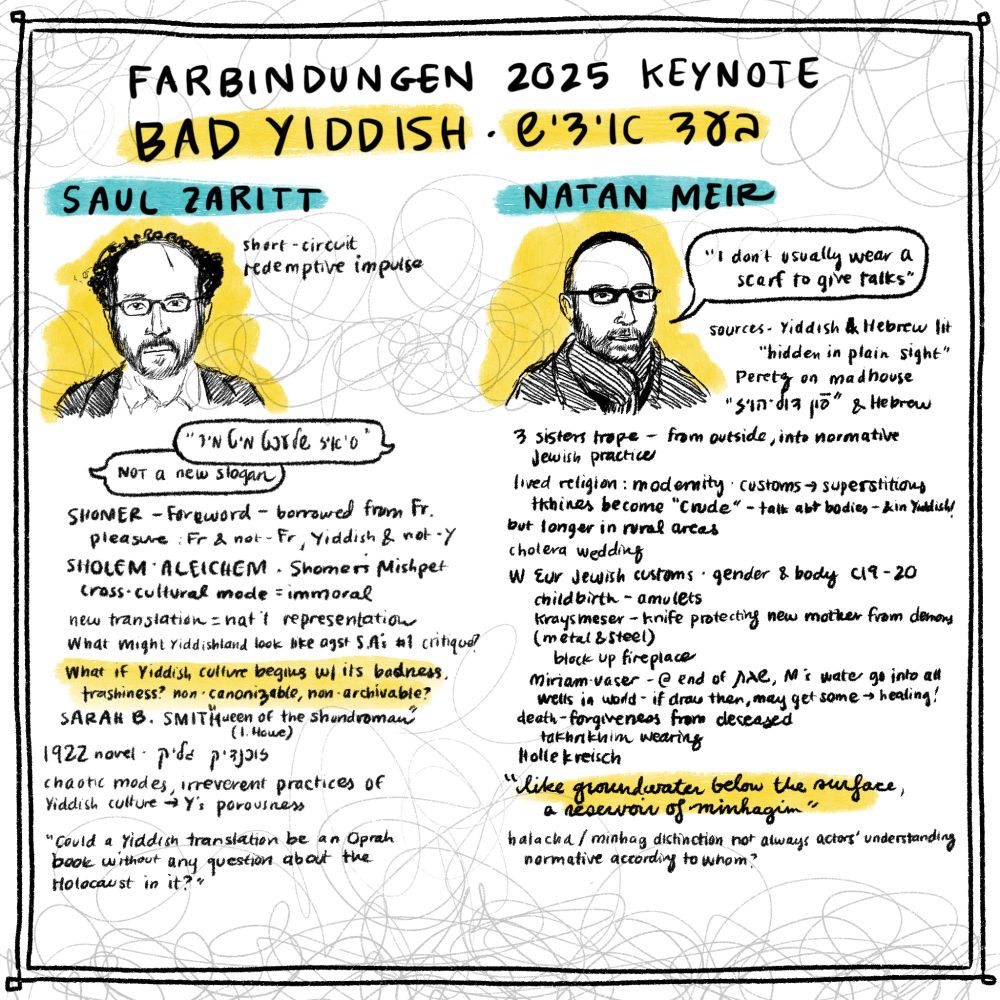 FARBINDUNGEN 2025 KEYNOTE
BAD YIDDISH · בעד אידיש
SAUL ZARITT
short-circuit
redemptive impulse
NOT a new slogan
SHOMER - Foreword - borrowed from Fr.
pleasure : Fr & not-Fr, Yiddish & not-Y
SHOLEM ALEICHEM . Shomer's Mishpet
cross-cultural mode = immoral
new translation = nat'l representation
What might Yiddishland look like agst S.A.'s #1 critique?
What if Yiddish culture begins w/ its badness,
trashiness? non-canonizable, non-archivable?
SARAH B. SMITH "queen of the shundroman"
(I. Howe)
1922 novel ·
chaotic modes, irreverent practices of
Yiddish culture → Y's porousness
"Could a Yiddish translation be an Oprah
book without any question about the
Holocaust in it?"
NATAN MEIR
"I don't usually wear a
scarf to give talks"
sources - Yiddish & Hebrew lit
"hidden in plain sight"
Peretz on madhouse
& Hebrew
3 sisters trope - from outside, into normative
Jewish practice
lived religion : modernity · customs → superstitions
tkhines become "crude" - talk abt bodies - & in Yiddish!
but longer in rural areas
cholera wedding
W Eur Jewish customs · gender & body C19-20
childbirth - amulets
kraysmeser - knife protecting new mother from demons
(metal & steel)
block up fireplace
Miriam-vaser - @ end of שבת, M's water go into all
wells in world - if draw then, may get some → healing!
death-forgiveness from deceased
takhrikhim wearing
Hollekreisch
"like groundwater below the surface,
a reservoir of minhagim"
halacha / minhag distinction not always actors' understanding
normative according to whom?